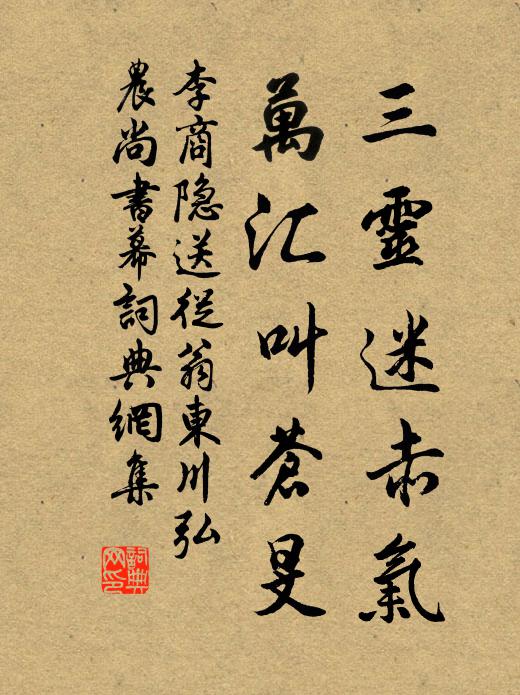 三靈迷赤氣
萬汇叫蒼旻
李商隐送從翁東川弘
農尚書幕詞典網集
詞典网印